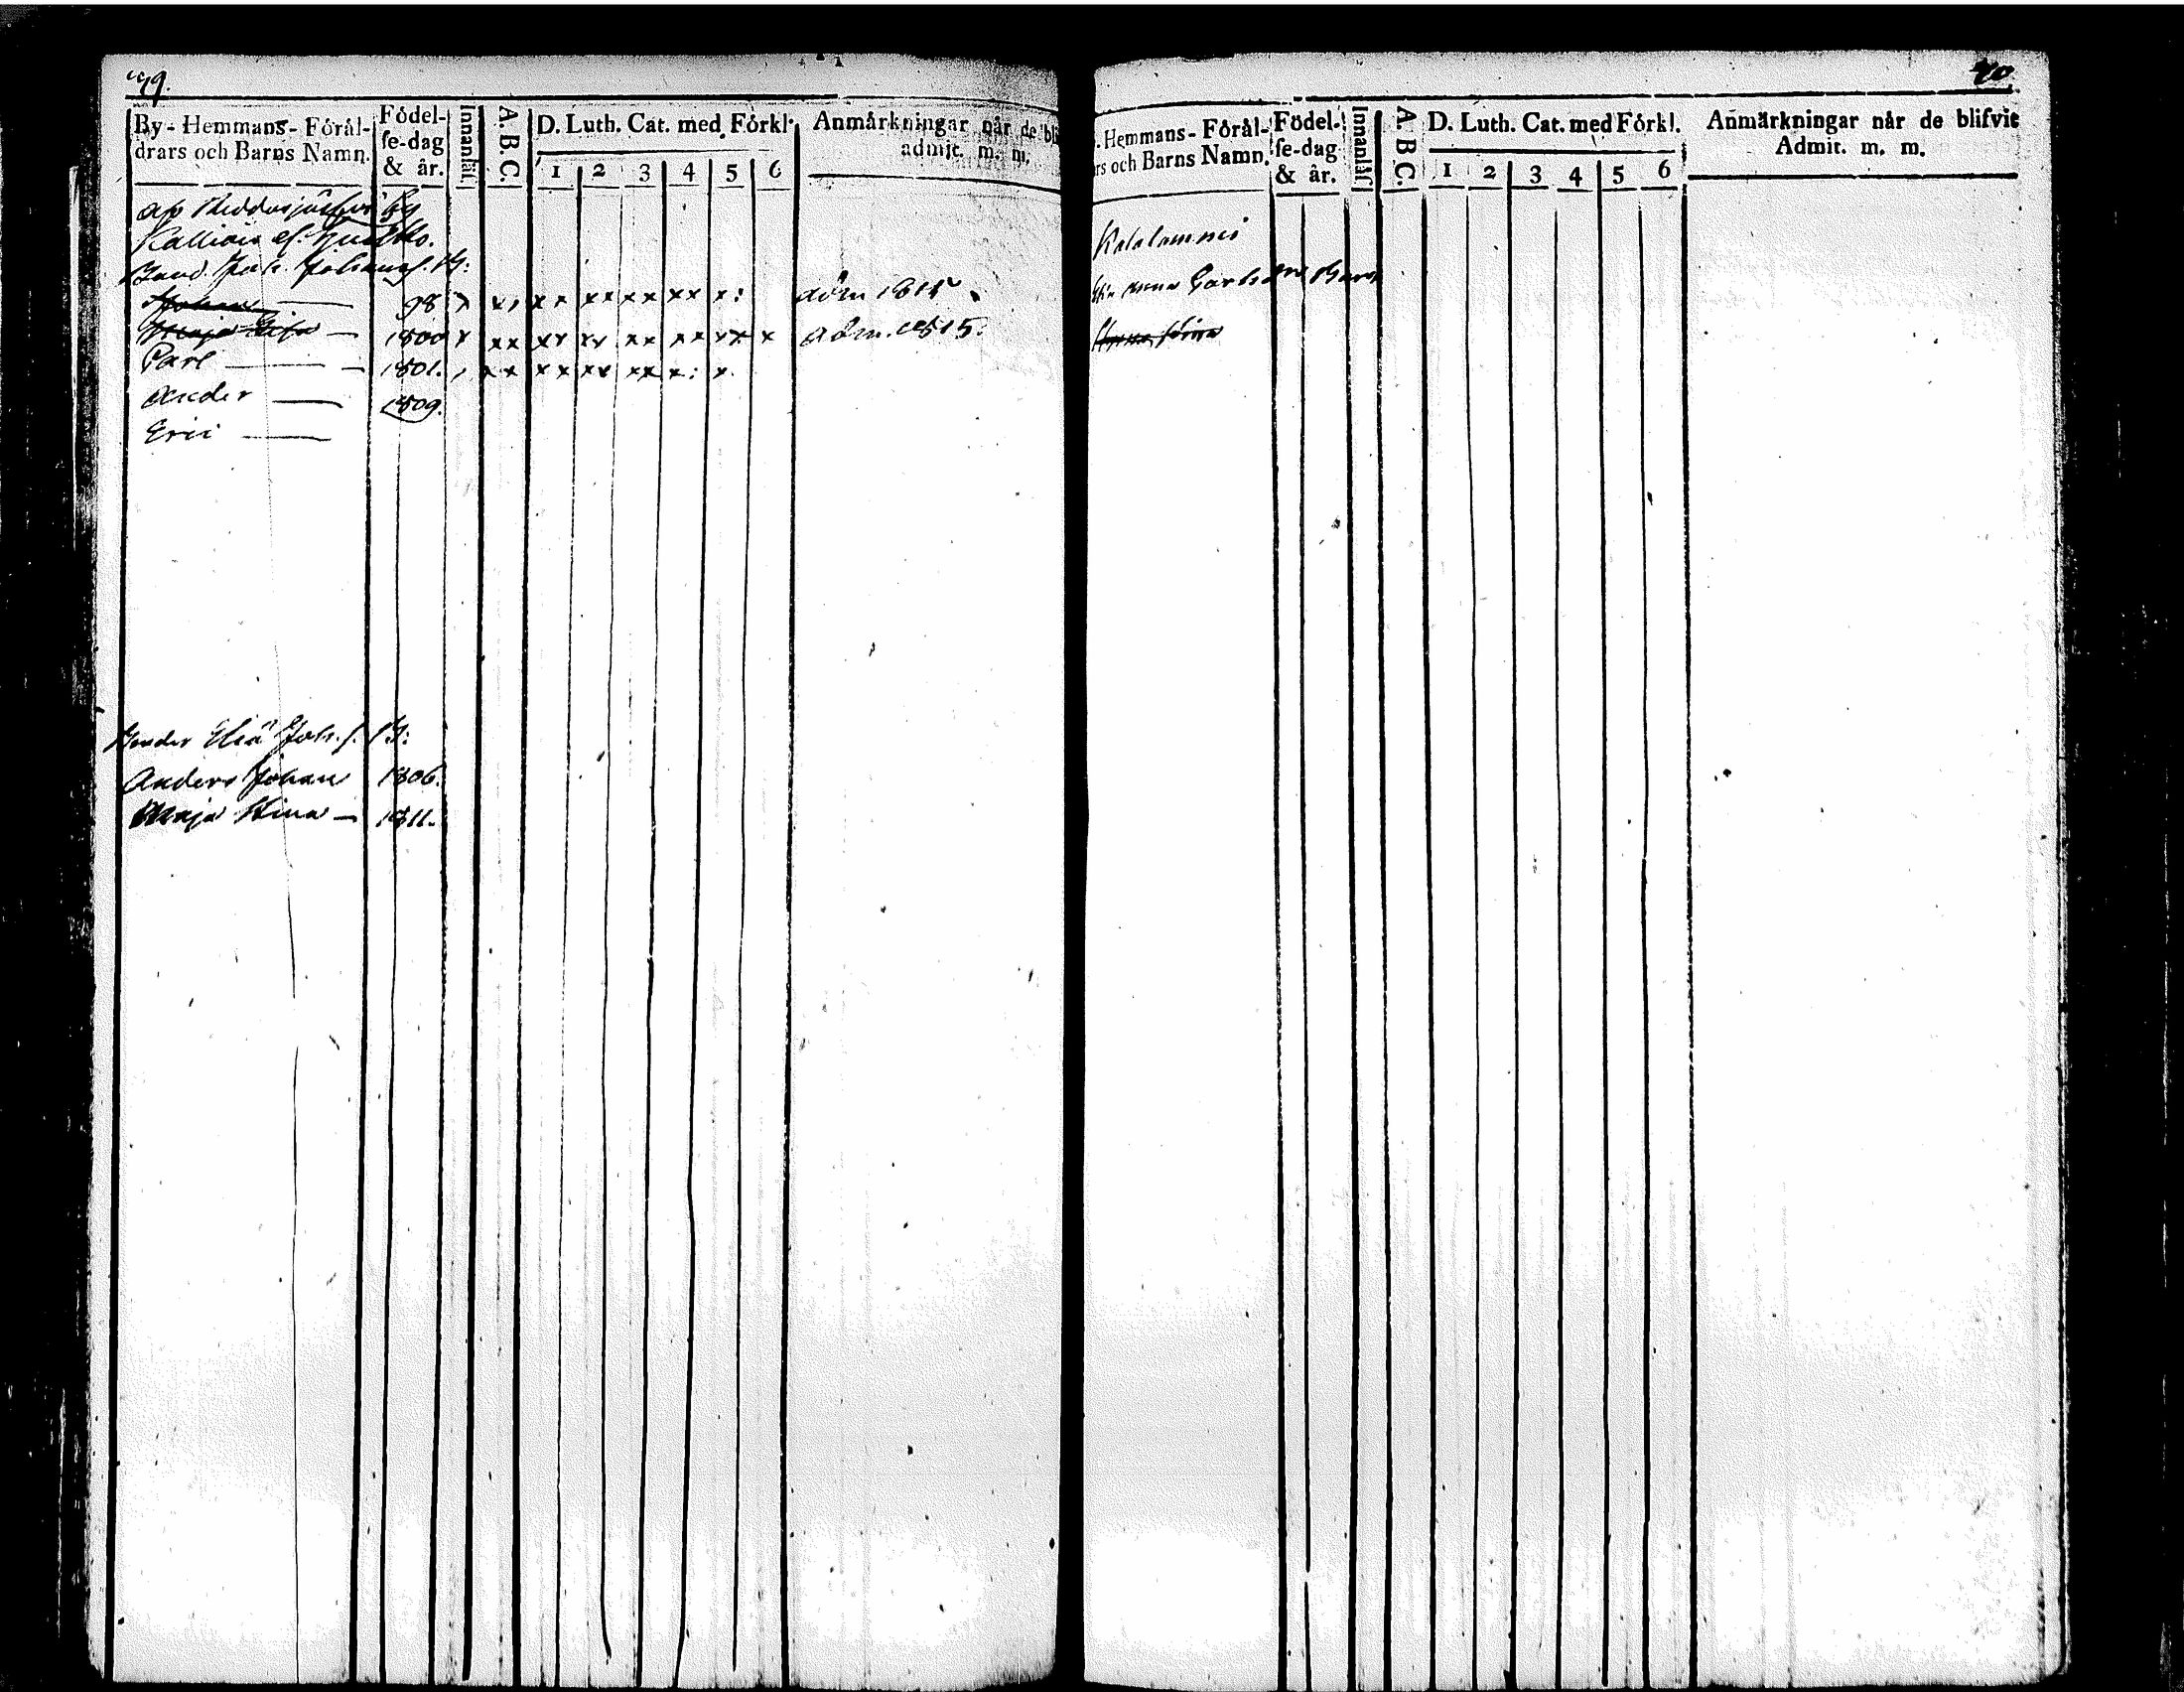 39.
By-Hemmans-Förål-
drars och Barns Namn.
Födel-
se-dag
& år.
Innanläs.
A. B. C.
D. Luth. Cat. med Förkl.
1 2 3 4 5 6
Anmärkningar når de bli
admit. m. m.
by
Kallioin el.
Joh. Johansf. B:
Johan — 98 x x, x x x x x x x x x: adm 1815.
Maja Lisa — 1800 x x x x x x x x x x x x x x adm. 1815.
Carl — 1801. , x x x x x x x x x: x
Ander — 1809.
Eric —
Eliä Joh. f. B:
Anders Johan 1806.
Maja Stina — 1811.
40
Hemmans-Förål-
rs och Barns Namn.
Födel-
se-dag
& år.
Innanläs.
A. B. C.
D. Luth. Cat. med Förkl.
1 2 3 4 5 6
Anmärkningar når de blifvit
Admit. m. m.
Anna Carls Barn
Anna Stina